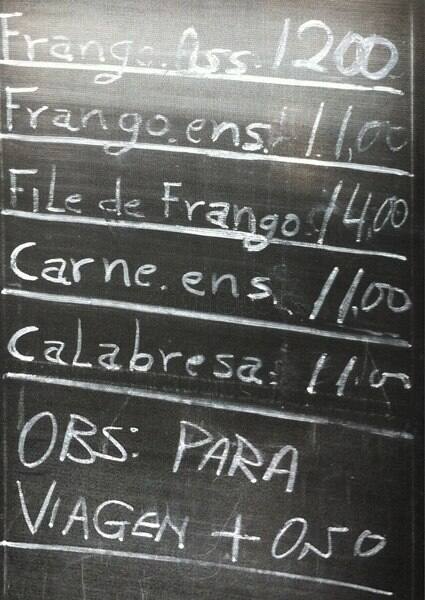 Frango. Ass. 1200
Frango. ens. 11,00
File de Frango 14,00
Carne. ens. 11,00
Calabresa: 11,00
OBS: PARA
VIAGEN + 0,50